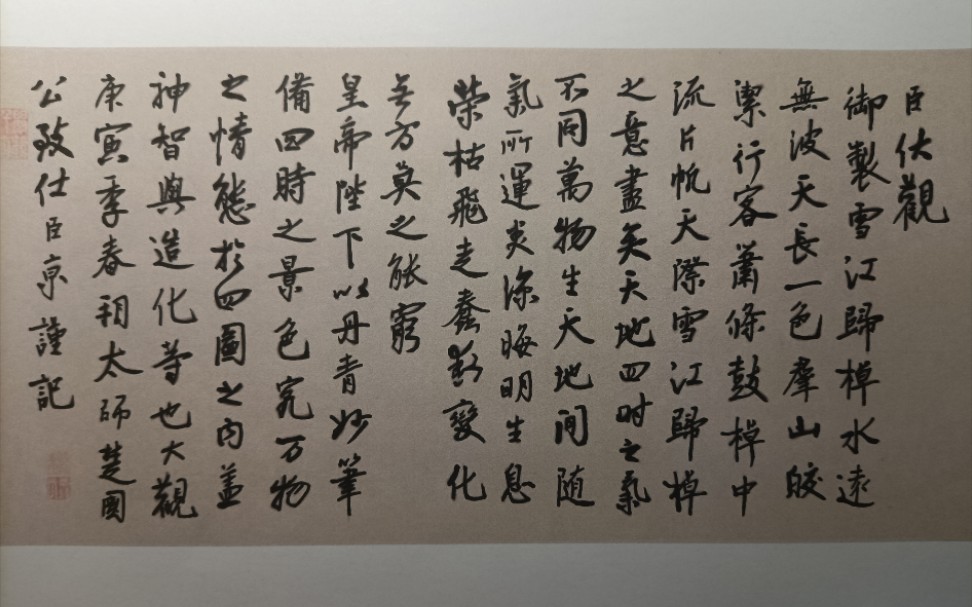 臣伏觀
御製雪江歸棹水遠
無波天長一色羣山皎
潔行客蕭條鼓棹中
流片帆天際雪江歸棹
之意盡矣天地四时之氣
不同萬物生天地间随
氣所運炎涼晦明生息
榮枯飛走蠢動變化
无方莫之能窮
皇帝陛下以丹青妙筆
備四時之景色究万物
之情態於四圖之内盖
神智與造化等也大觀
庚寅季春朔太師楚國
公致仕臣京謹記